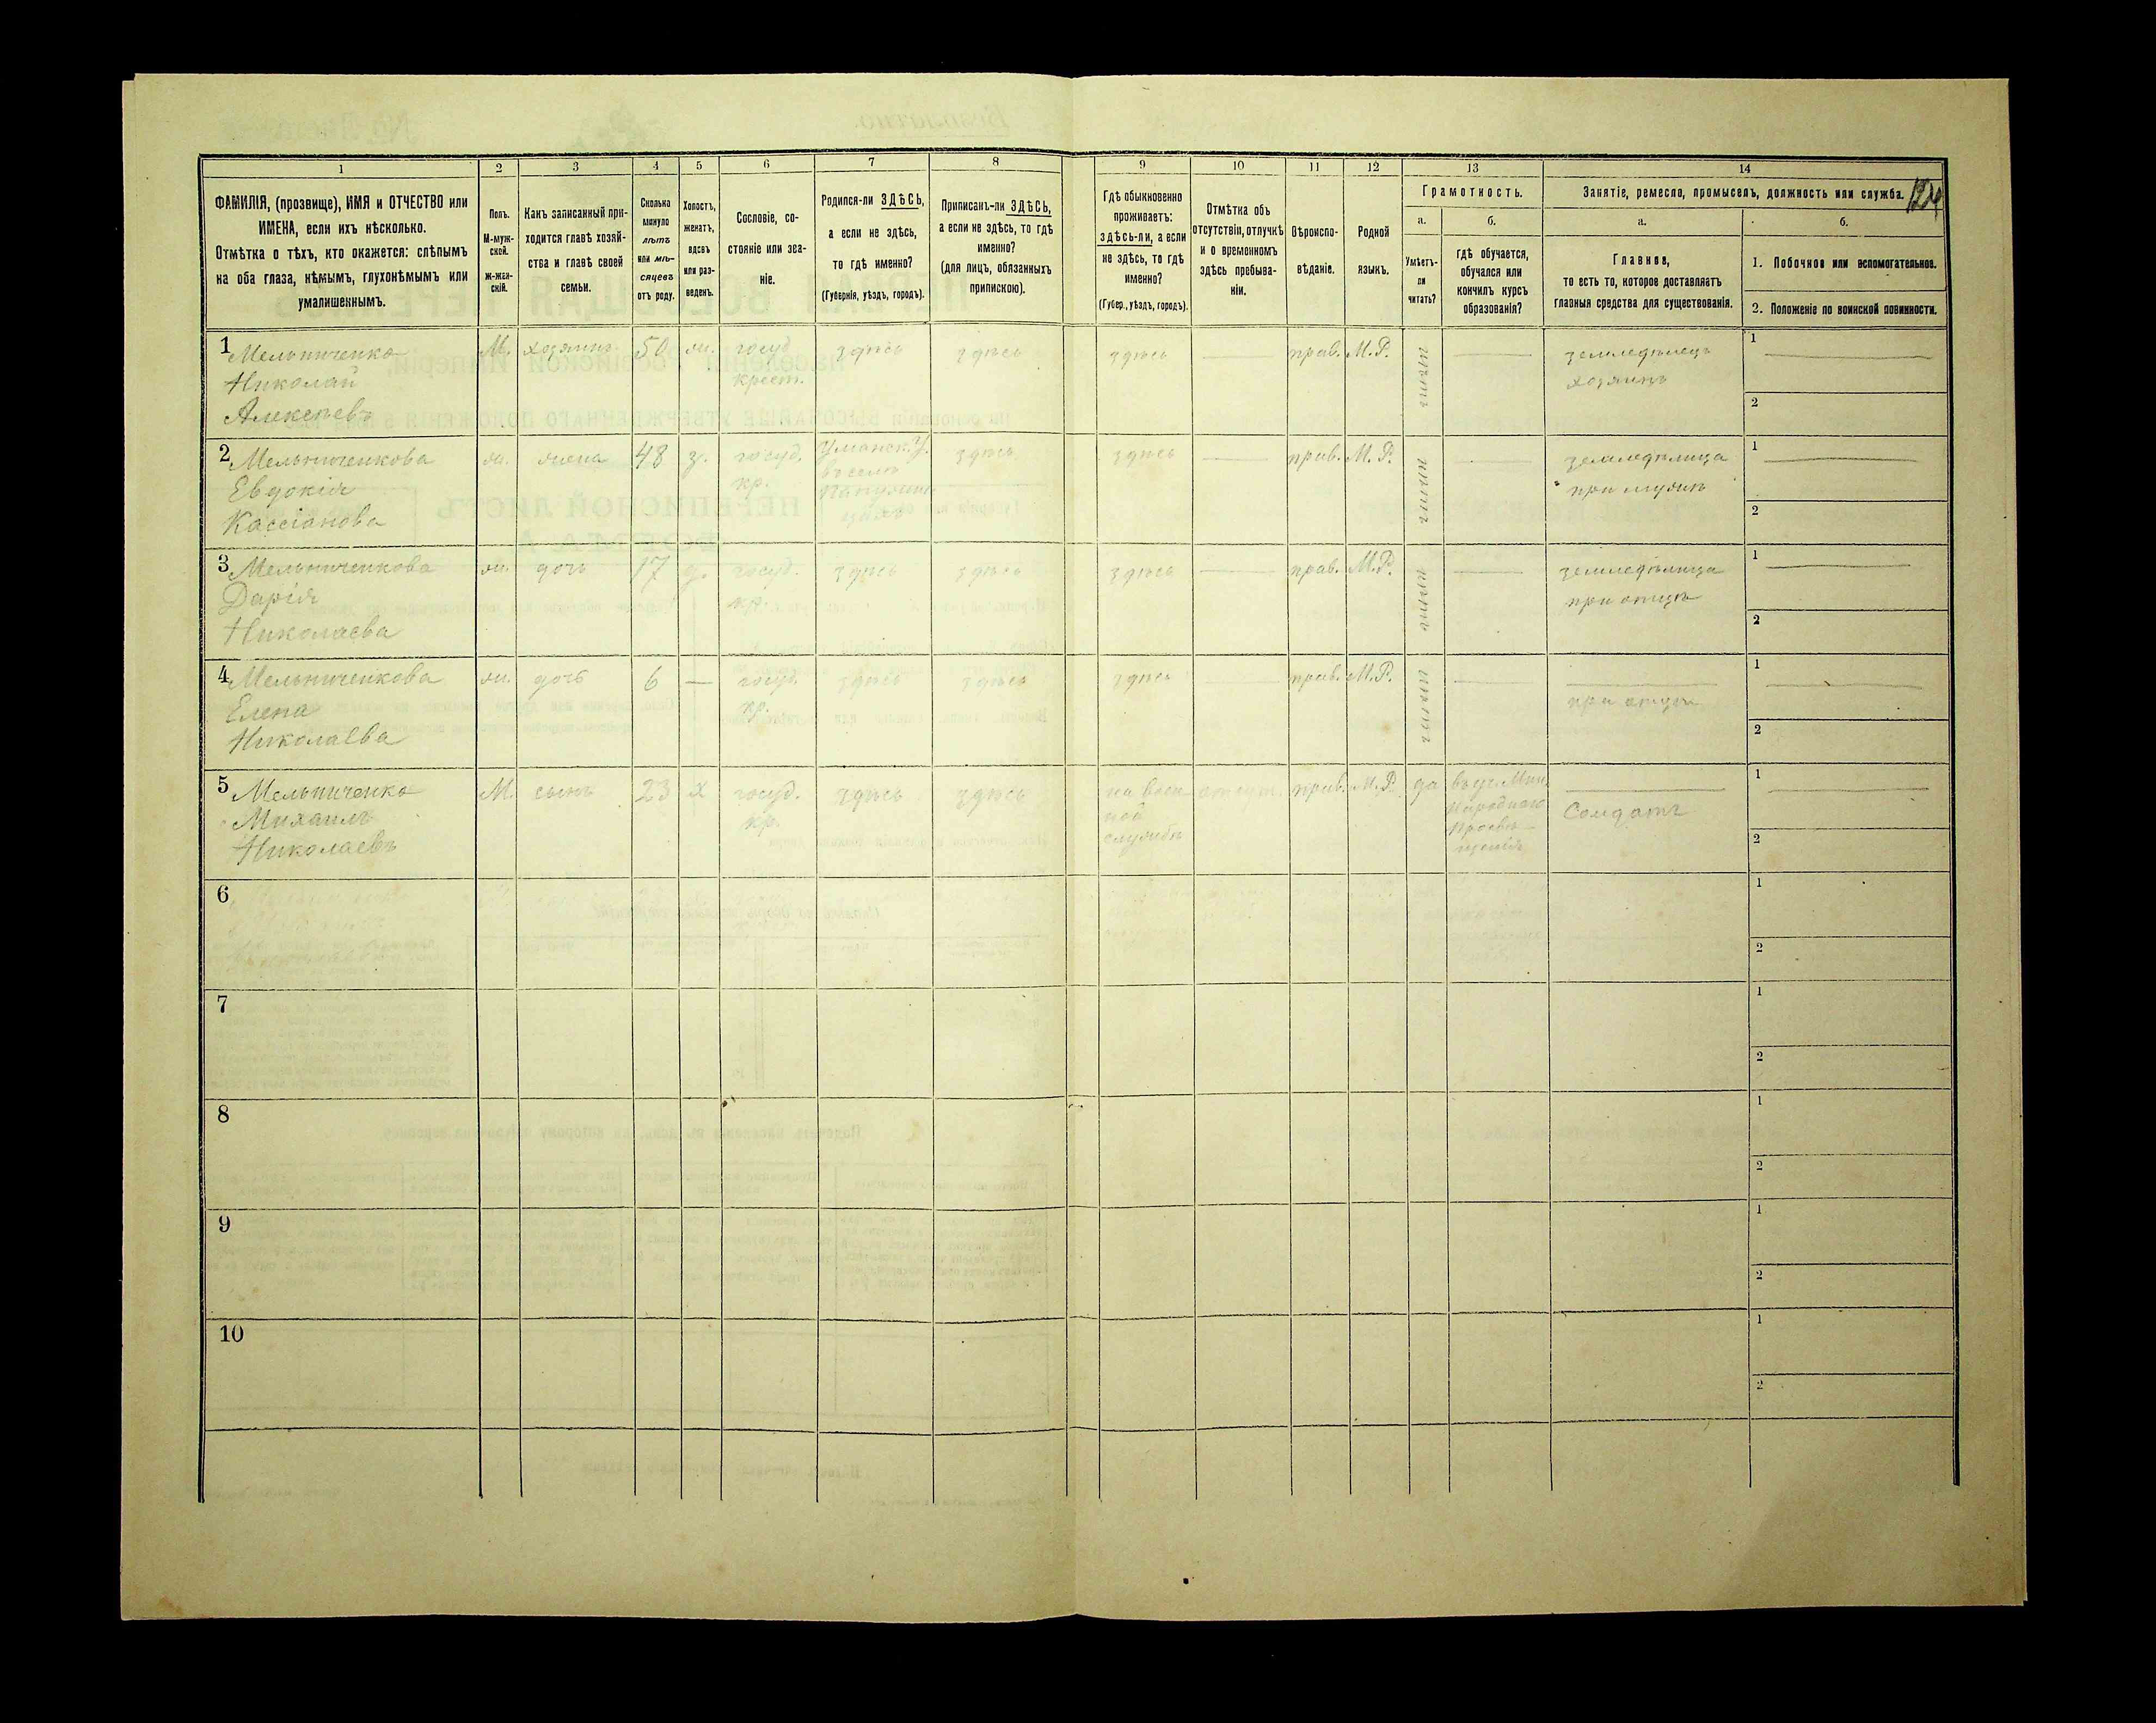 1 2 3 4 5 6 7 8 9 10 11 12 13 14
ФАМИЛІЯ, (прозвище), ИМЯ и ОТЧЕСТВО или
ИМЕНА, если ихъ нѣсколько.
Отмѣтка о тѣхъ, кто окажется: слѣпымъ
на оба глаза, нѣмымъ, глухонѣмымъ или
умалишеннымъ.
Полъ.
М-муж-
ской.
Ж-жен-
скій.
Какъ записанный при-
ходится главѣ хозяй-
ства и главѣ своей
семьи.
Сколько
минуло
лѣтъ
или мѣ-
сяцевъ
отъ роду.
Холостъ,
женатъ,
вдовъ
или раз-
веденъ.
Сословіе, со-
стояніе или зва-
ніе.
Родился-ли ЗДѢСЬ,
а если не здѣсь,
то гдѣ именно?
(Губернія, уѣздъ, городъ).
Приписанъ-ли ЗДѢСЬ,
а если не здѣсь, то гдѣ
именно?
(для лицъ, обязанныхъ
припискою).
Гдѣ обыкновенно
проживаетъ:
здѣсь-ли, а если
не здѣсь, то гдѣ
именно?
(Губер., уѣздъ, городъ).
Отмѣтка объ
отсутствіи, отлучкѣ
и о временномъ
здѣсь пребыва-
ніи.
Вѣроиспо-
вѣданіе.
Родной
языкъ.
Грамотность.
а.
Умѣетъ-
ли
читать?
б.
Гдѣ обучается,
обучался или
кончилъ курсъ
образованія?
Занятіе, ремесло, промыселъ, должность или служба.
124
а.
Главное,
то есть то, которое доставляетъ
главныя средства для существованія.
б.
1. Побочное или вспомогательное.
2. Положеніе по воинской повинности.
1 Мельниченко М. хозяинъ 50 ж. госуд. здѣсь здѣсь здѣсь — прав. М.Р. — земледѣлецъ 1
Николай крест. хозяинъ
Алексѣевъ 2
2 Мельниченкова ж. жена 48 з. госуд. Уманск. у. здѣсь здѣсь — прав. М.Р. — земледѣлица 1
Евдокія кр. въ селѣ при мужѣ
Кассіанова 2
3 Мельниченкова ж. дочь 17 д. госуд. здѣсь здѣсь здѣсь — прав. М.Р. — земледѣлица 1
Дарія кр. при отцѣ
Николаева 2
4 Мельниченкова ж. дочь 6 — госуд. здѣсь здѣсь здѣсь — прав. М.Р. — 1
Елена кр. при отцѣ
Николаева 2
5 Мельниченко М. сынъ 23 х госуд. здѣсь здѣсь на воен отсут. прав. М.Р. да въ уч. Мин. 1
Михаилъ кр. ной Народнаго Солдатъ
Николаевъ службѣ Просвѣ- 2
щенія
6 1
2
7 1
2
8 1
2
9 1
2
10 1
2